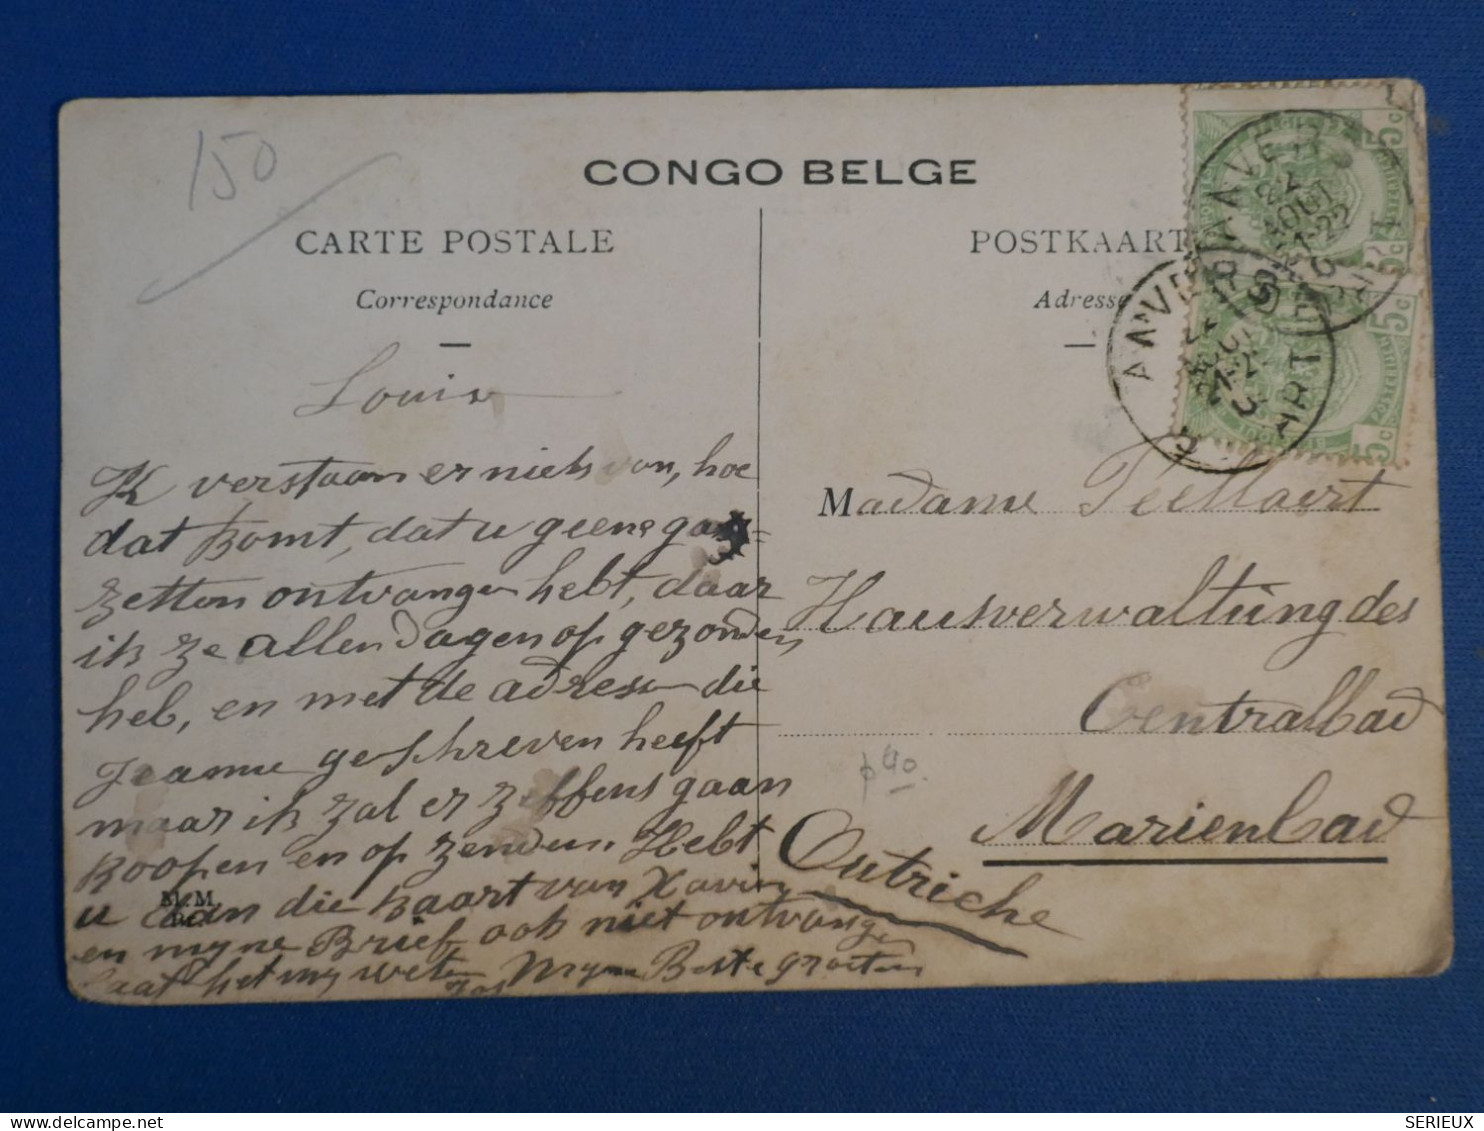 150
CONGO BELGE
CARTE POSTALE
Correspondance
POSTKAART
Adresse
5c
5c
5c
5c
ANVERS
AOUT
21-22
ANVERS
Louis
Ik verstaan er niets van, hoe
dat komt, dat u geene ga-
zetten ontvangen hebt, daar
ik ze allen dagen op gezonden
heb, en met de adress die
Jeanne geschreven heeft
maar ik zal er zeffens gaan
koopen en op zenden. Hebt
u dan die kaart van Xavier
en myne Brief ook niet ontvangen
laat het my weten Myne Beste groeten
M.M.
Madame Teellaert
Hausverwaltung des
Centralbad
Marienbad
Outriche
p 40
SERIEUX